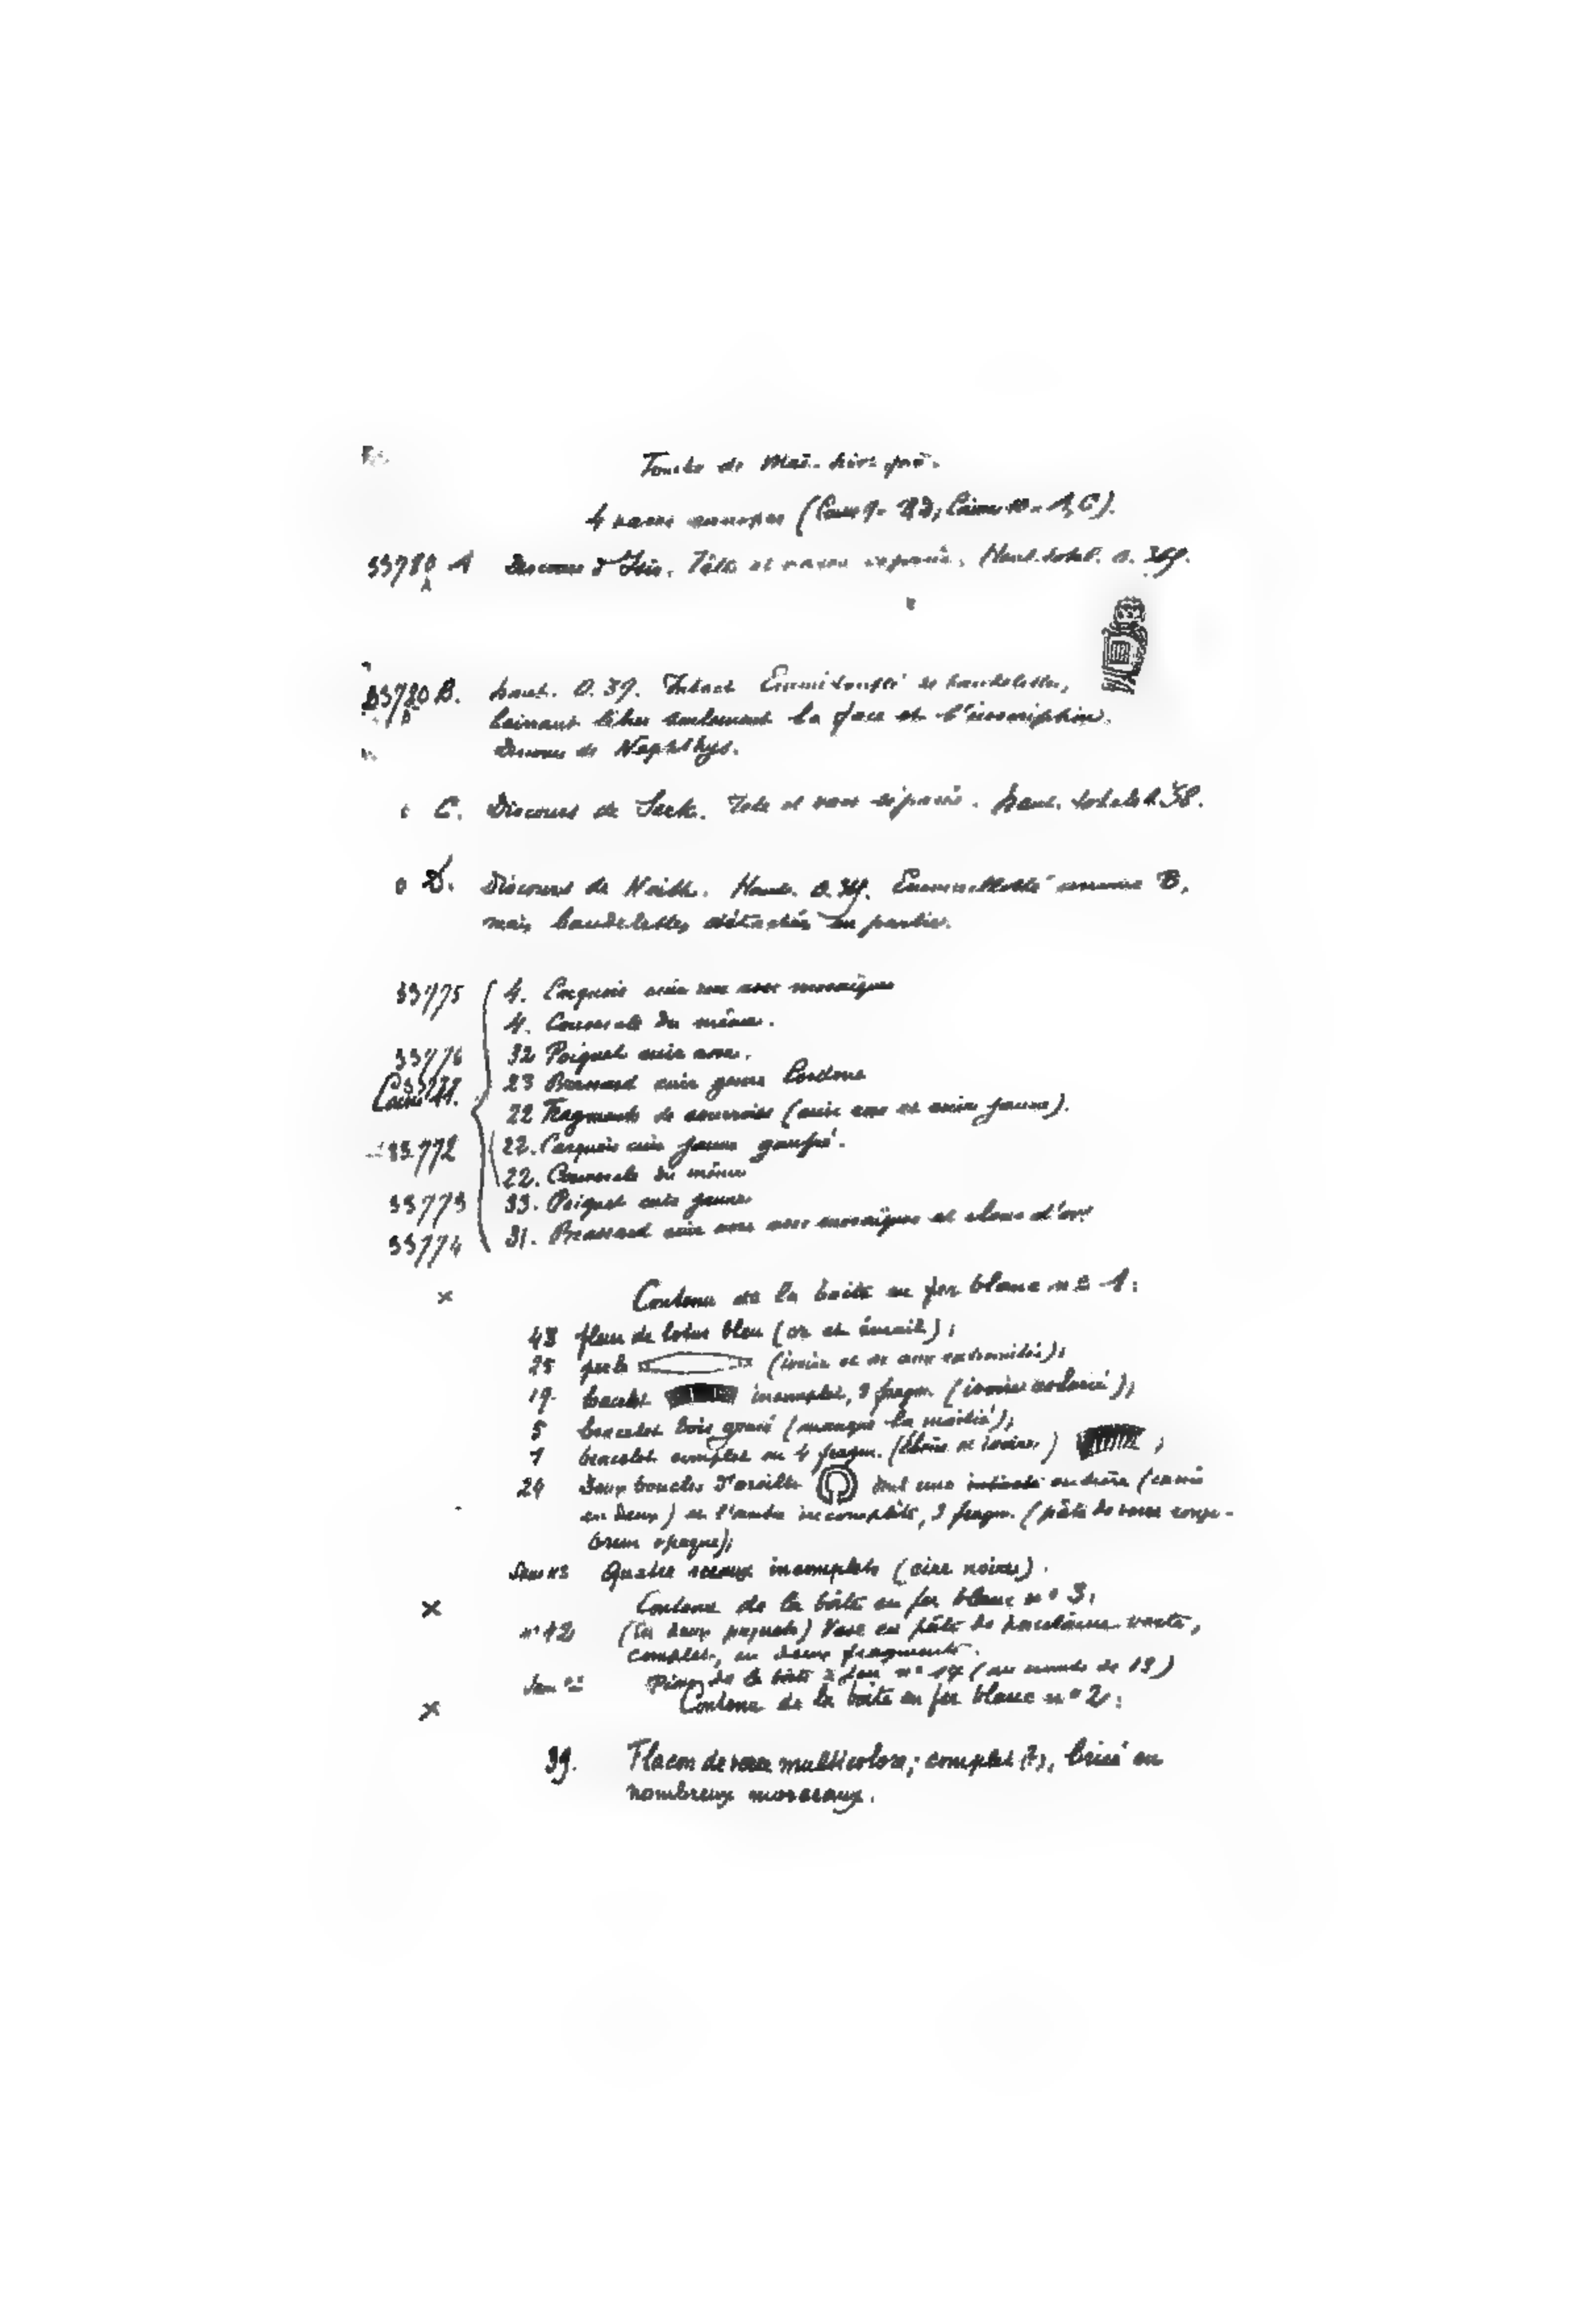 Tombe de Maï-
4 vases canopes
33780 A Discours d'Isis. Tête et vase séparés. Haut. total. 0.39.
A
33780 B. haut. 0.39. Intact Emmitouflé de bandelettes,
B
laissant libre seulement la face et l'inscription.
Discours de Nephthys.
C. Discours de Selk. Tête et vase séparés. haut. totale 0.38.
D. Discours de Neith. Haut. 0.39. Emmailloté comme B,
mais bandelettes détachées en partie.
33775 4. Carquois cuir rose avec mosaïques
4. Couvercle du même.
33776 32 Poignet cuir rose.
23 Brassard cuir jaune Cordons
22 Fragments de courroies (cuir rose et cuir jaune).
33772 22. Carquois cuir jaune gaufré.
22. Couvercle du même
33773 33. Poignet cuir jaune
33774 31. Brassard cuir rose avec mosaïques et clous d'or
x Contenu de la boîte en fer blanc n° 1:
43 fleur de lotus bleu (or et émail);
25 perle (ivoire et or aux extrémités);
19 bracelet incomplet, 3 fragm. (ivoire coloré);
5 bracelet bois gravé (manque la moitié);
7 bracelet complet en 4 fragm. (ébène et ivoire)
24 Deux boucles d'oreille dont une intacte entière (cassée
en deux) et l'autre incomplète, 3 fragm. (pâte de verre corps-
brun opaque);
Sans n° Quatre sceaux incomplets (cire noire).
x Contenu de la boîte en fer blanc n° 3:
n° 12 (En deux paquets) Vase en pâte de porcelaine verte,
complet, en deux fragments.
Sans n° Pions de la boîte à jeu n° 17 (au nombre de 13)
x Contenu de la boîte en fer blanc n° 2:
39. Flacon de verre multicolore; complet (?), brisé en
nombreux morceaux.